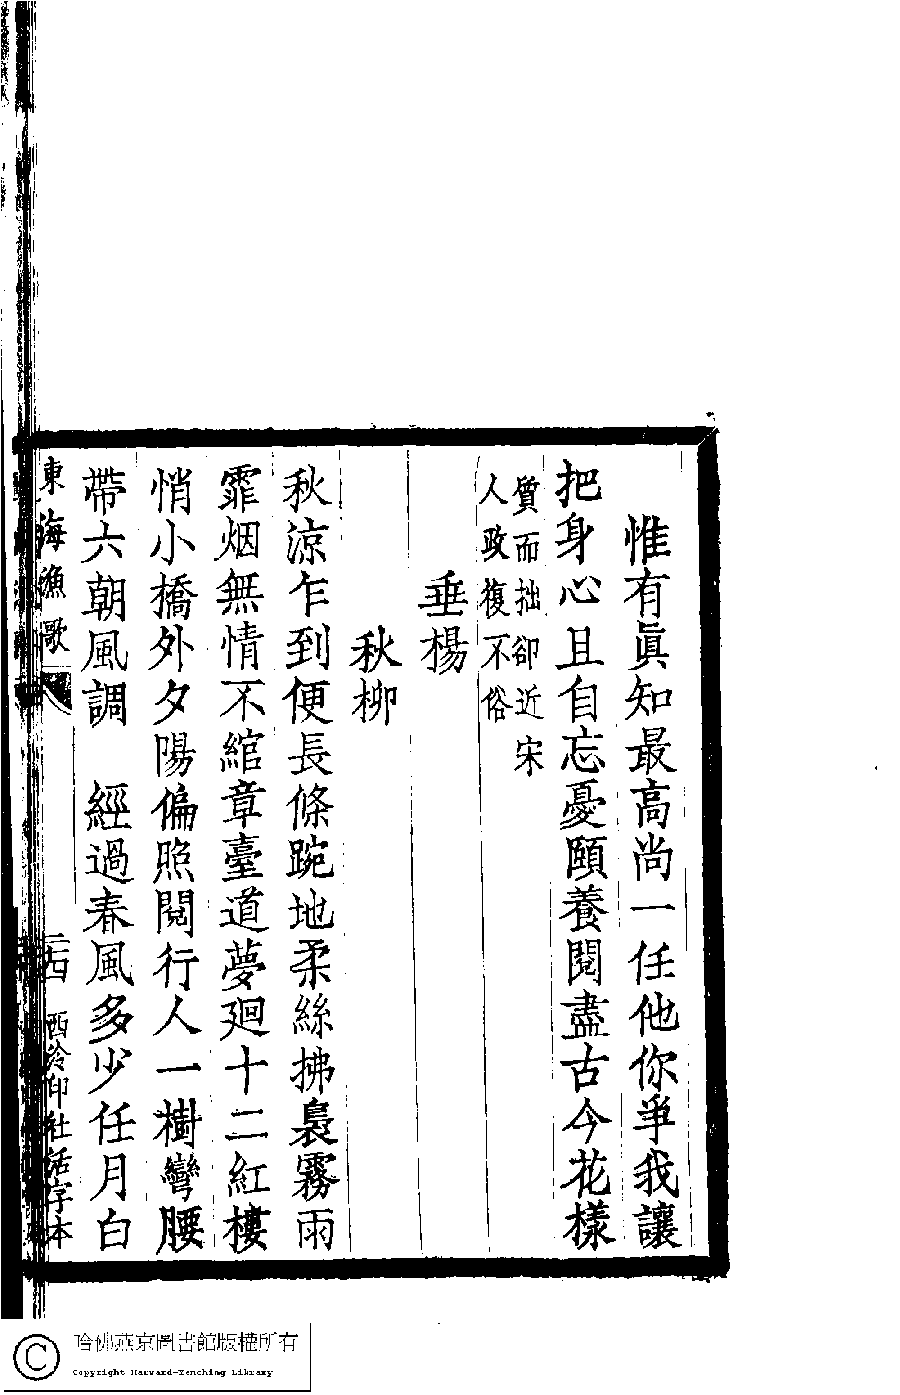 惟有眞知最高尚一任他你爭我讓
把身心且自忘憂頤養閱盡古今花樣
質而拙卻近宋
人政復不俗
垂楊
秋柳
秋涼乍到便長條踠地柔絲拂裊霧雨
霏烟無情不綰章臺道夢廻十二紅樓
悄小橋外夕陽偏照閱行人一樹彎腰
帶六朝風調　經過春風多少任月白
東海漁歌
二四
西泠印社活字本
哈佛燕京圖書館版權所有
Copyright Harvard-Yenching Library